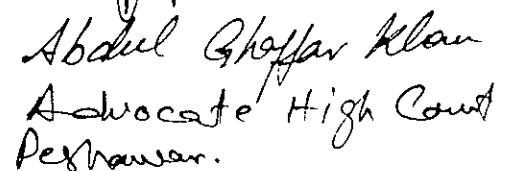 Abdul Ghaffar Khan
Advocate High Court
Peshawar.